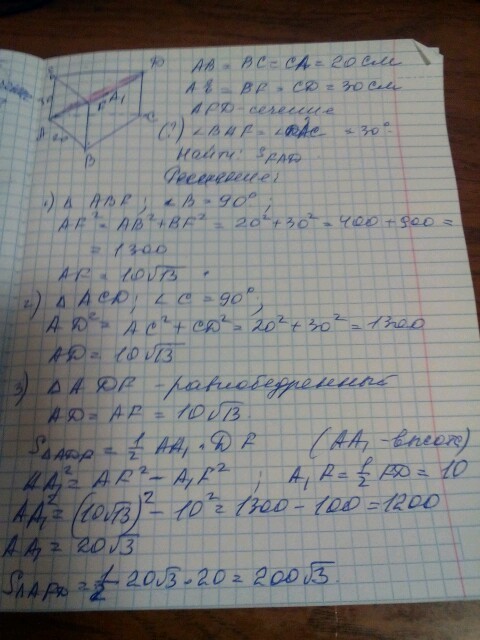 D
F A₁
A
C
B
20
AB = BC = CA = 20 см
= BF = CD = 30 см
AFD - сечение
(?) ∠BAF = 30°
Найти: S FAD
Решение:
1) Δ ABF; ∠B = 90°;
AF² = AB² + BF² = 20² + 30² = 400 + 900 =
= 1300
AF = 10√13
2) Δ ACD; ∠C = 90°;
AD² = AC² + CD² = 20² + 30² = 1300
AD = 10√13
3) Δ ADF - равнобедренный
AD = AF = 10√13.
S ΔADF = 1/2 AA₁ · DF (AA₁ - высота)
AA₁² = AF² - A₁F² ; A₁F = 1/2 FD = 10
AA₁² = (10√13)² - 10² = 1300 - 100 = 1200
AA₁ = 20√3
S ΔAFD = 1/2 20√3 · 20 = 200√3.